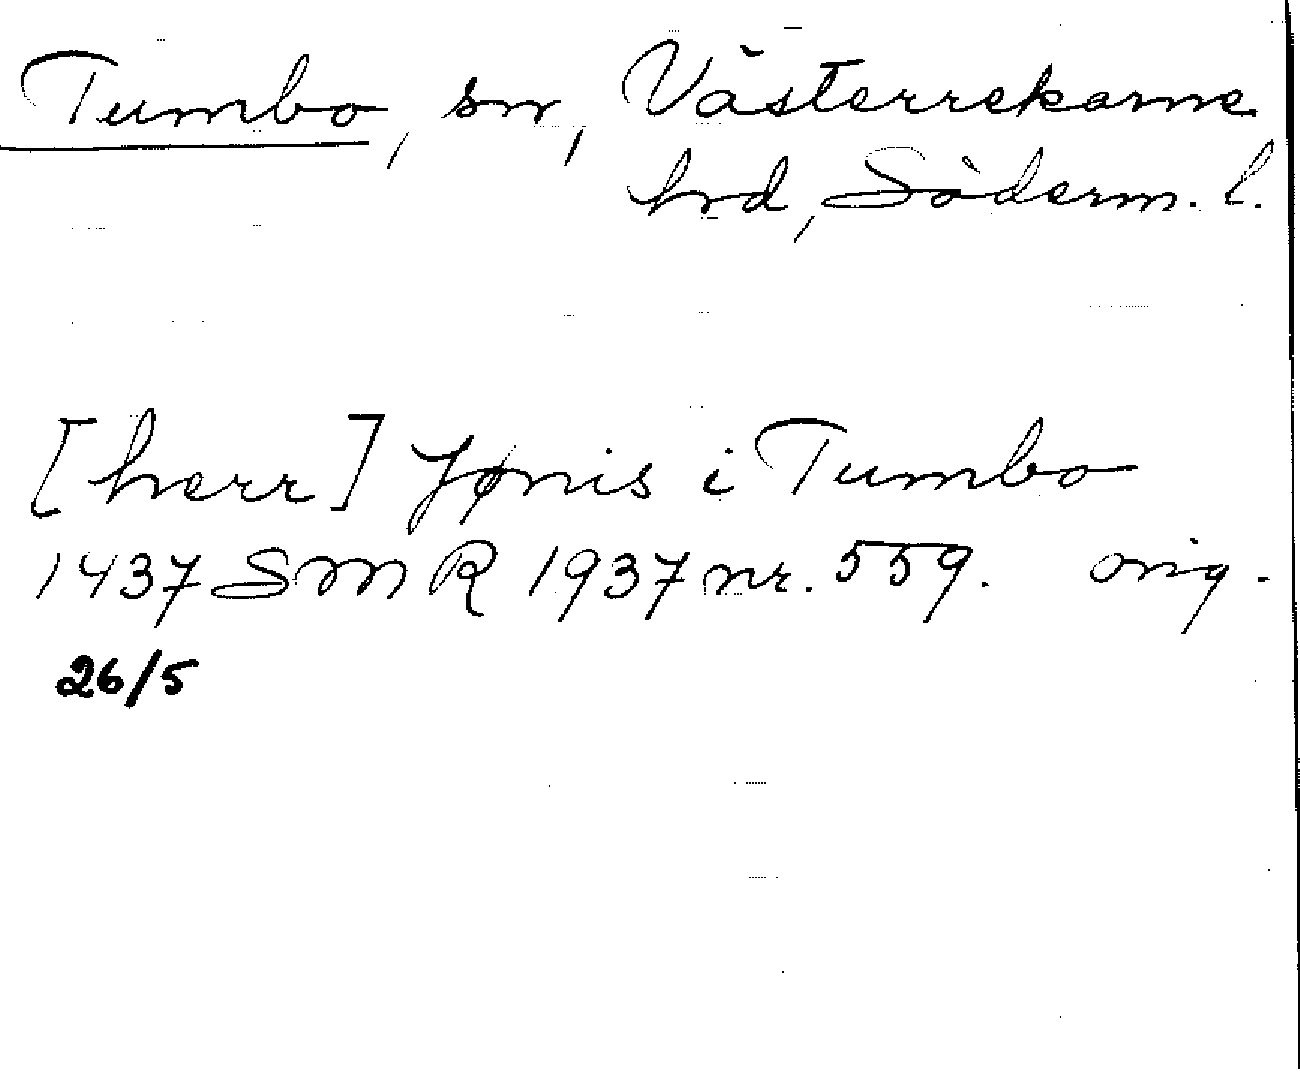 Tumbo, sn, Västerrekarne
hrd, Söderm. l.
[herr] Jønis i Tumbo
1437 SMR 1937 nr. 559. orig.
26/5